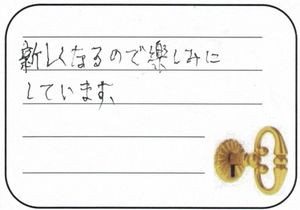 新しくなるので楽しみに
しています。